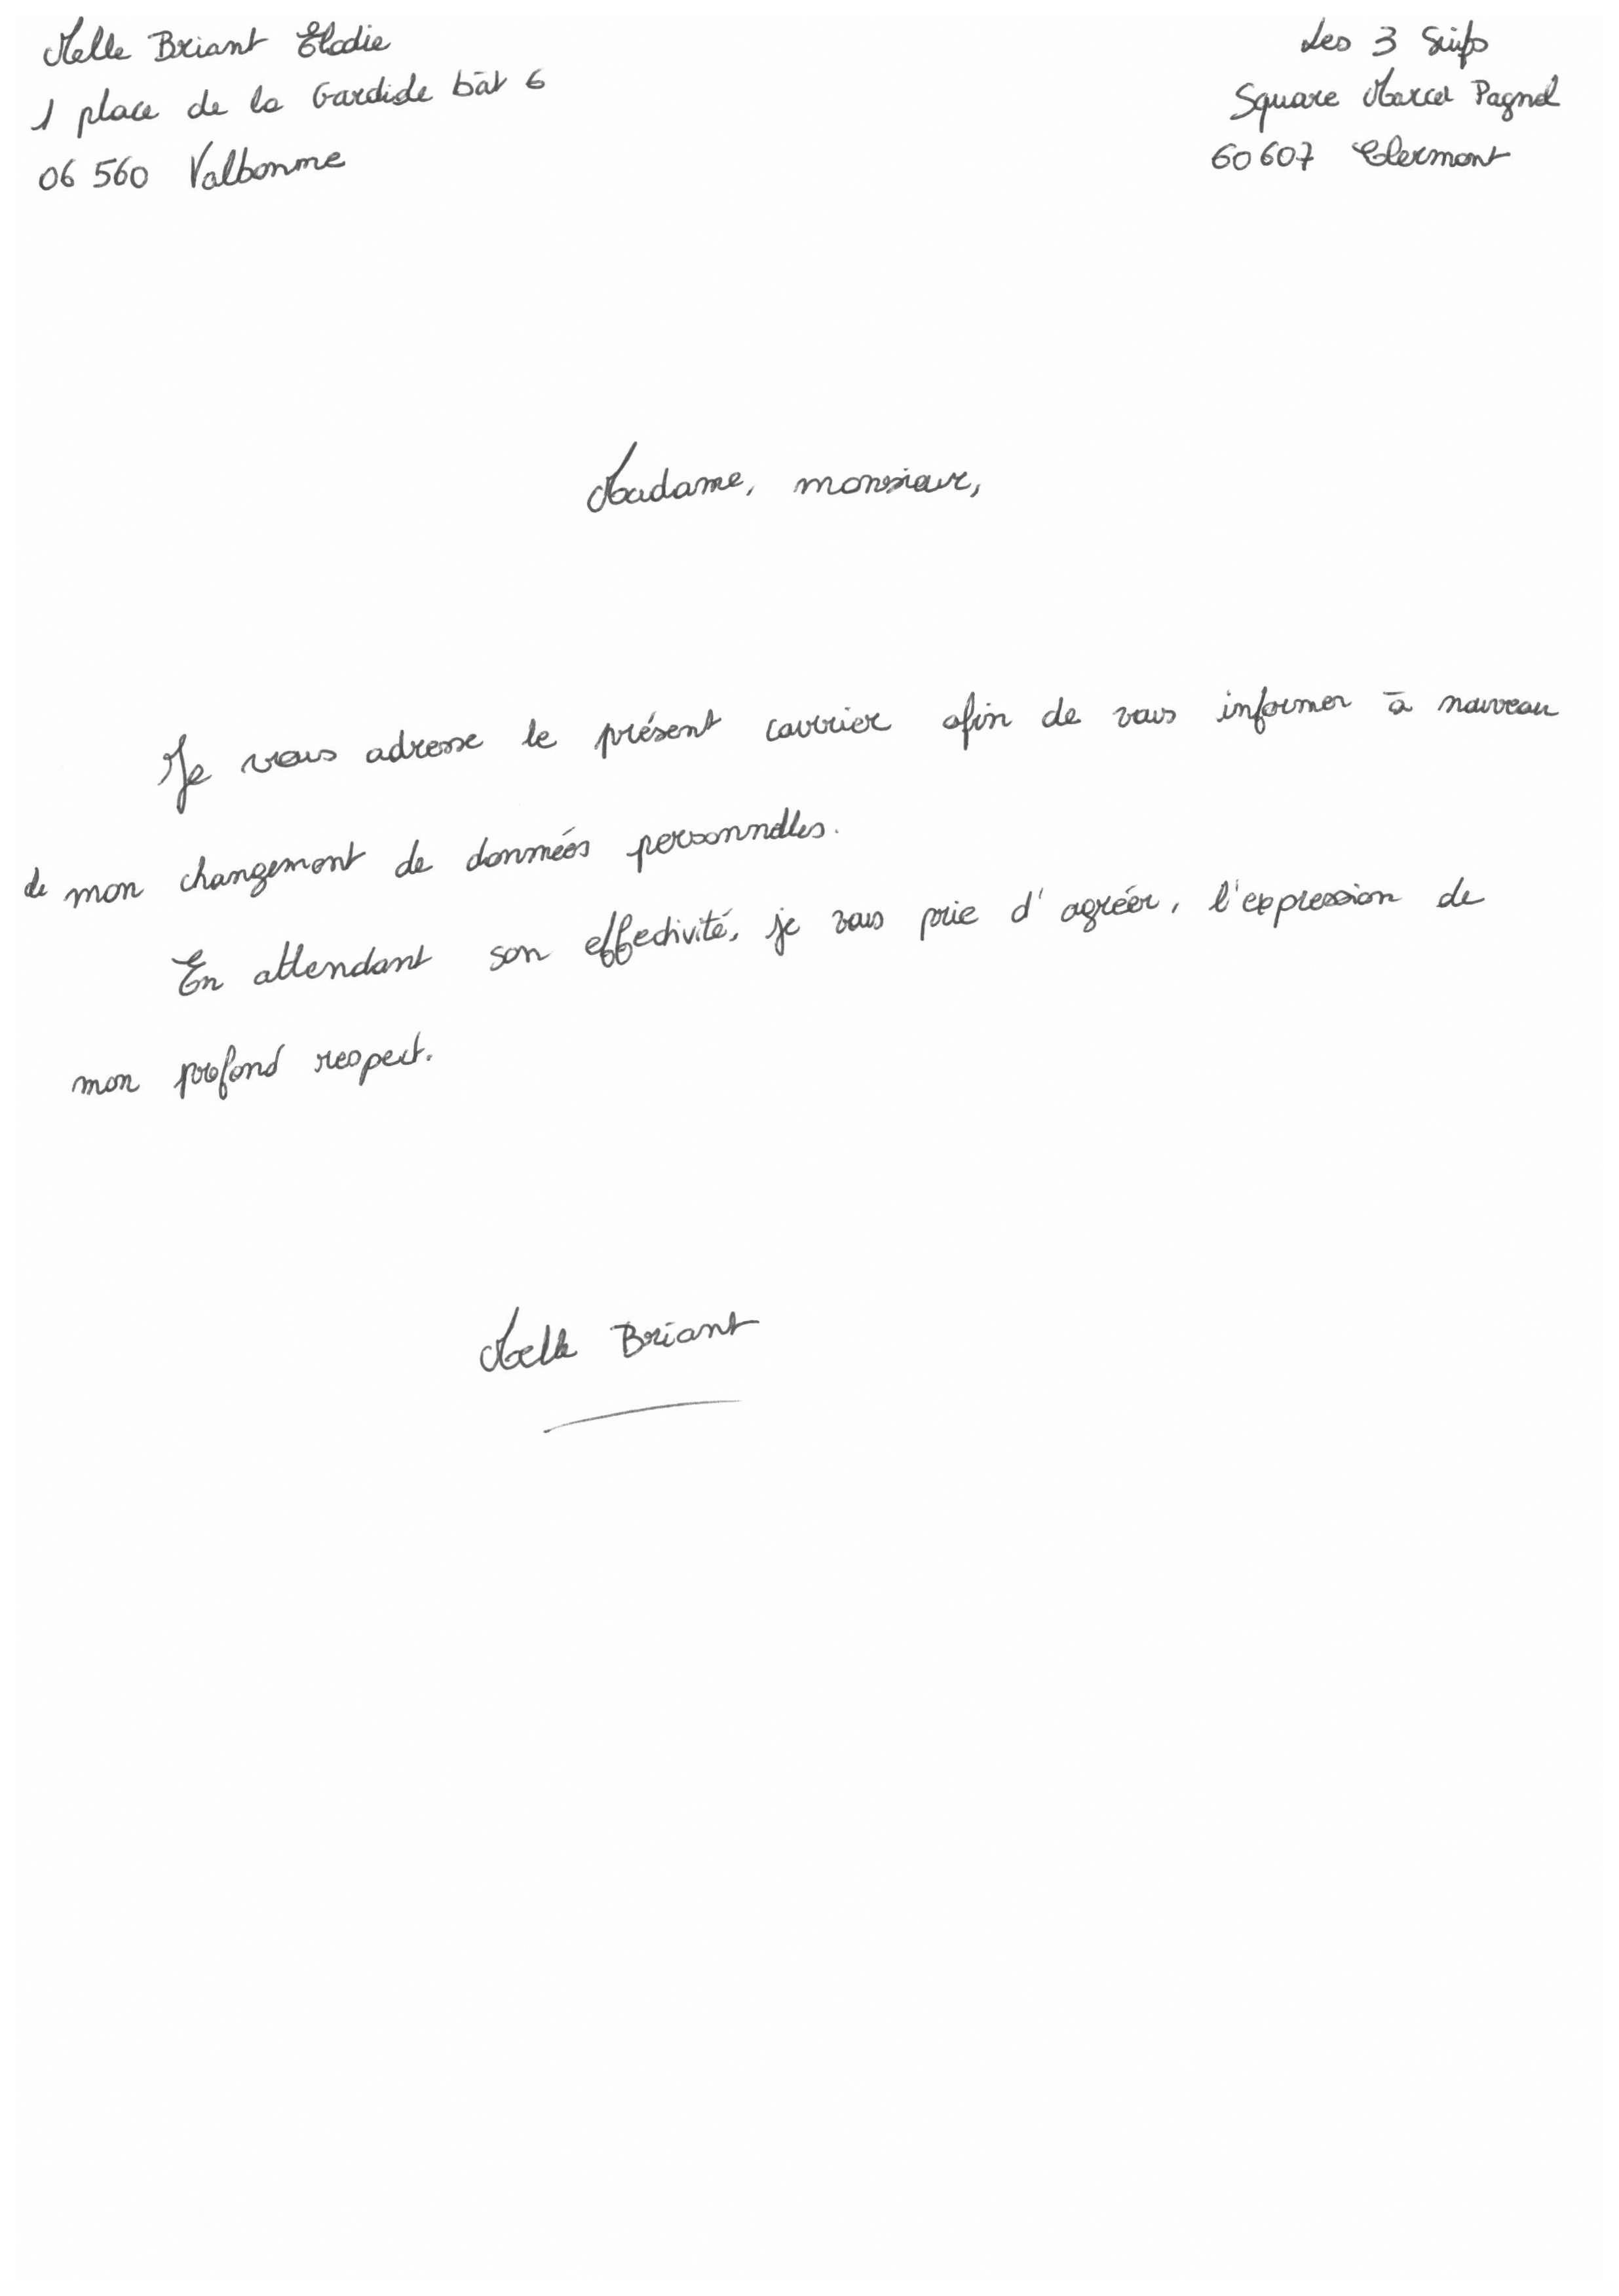 Melle Briant Elodie
1 place de la Gardide bât 6
06 560 Valbonne
Les 3 Suifs
Square Marcel Pagnol
60607 Clermont
Madame, monsieur,
Je vous adresse le présent courrier afin de vous informer à nouveau
de mon changement de données personnelles.
En attendant son effectivité, je vous prie d'agréer, l'expression de
mon profond respect.
Melle Briant